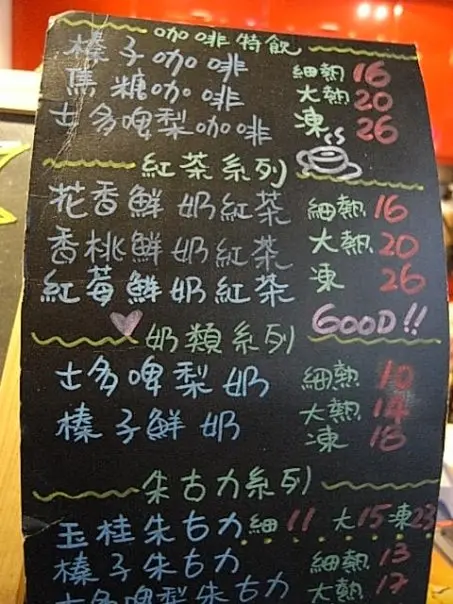 咖啡特飲
榛子咖啡 細熱 16
焦糖咖啡 大熱 20
士多啤梨咖啡 凍 26
紅茶系列
花香鮮奶紅茶 細熱 16
香桃鮮奶紅茶 大熱 20
紅莓鮮奶紅茶 凍 26
奶類系列 GOOD!!
士多啤梨奶 細熱 10
榛子鮮奶 大熱 14
凍 18
朱古力系列
玉桂朱古力 細 11 大 15 凍 23
榛子朱古力 細熱 13
士多啤梨朱古力 大熱 17